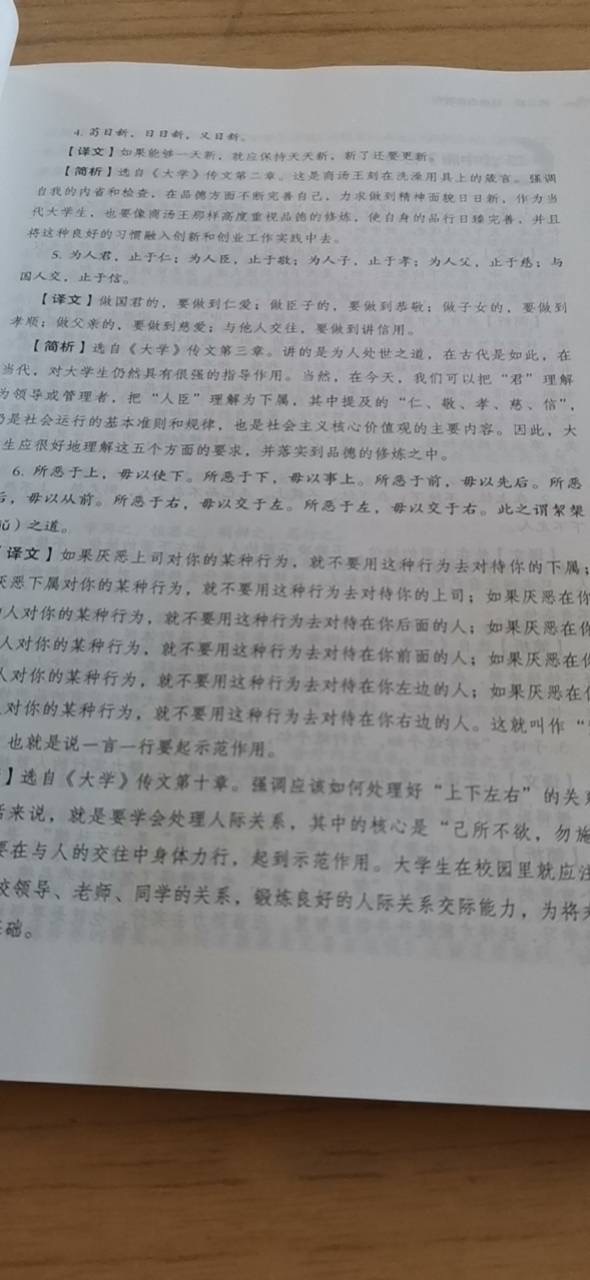 4. 苟日新，日日新，又日新。
【译文】如果能够一天新，就应保持天天新，新了还要更新。
【简析】选自《大学》传文第二章。这是商汤王刻在洗澡用具上的箴言。强调
自我的内省和检查，在品德方面不断完善自己，力求做到精神面貌日日新，作为当
代大学生，也要像商汤王那样高度重视品德的修炼，使自身的品行日臻完善，并且
将这种良好的习惯融入创新和创业工作实践中去。
5. 为人君，止于仁；为人臣，止于敬；为人子，止于孝；为人父，止于慈；与
国人交，止于信。
【译文】做国君的，要做到仁爱；做臣子的，要做到恭敬；做子女的，要做到
孝顺；做父亲的，要做到慈爱；与他人交往，要做到讲信用。
【简析】选自《大学》传文第三章。讲的是为人处世之道，在古代是如此，在
当代，对大学生仍然具有很强的指导作用。当然，在今天，我们可以把“君”理解
为领导或管理者，把“人臣”理解为下属，其中提及的“仁、敬、孝、慈、信”，
仍是社会运行的基本准则和规律，也是社会主义核心价值观的主要内容。因此，大
生应很好地理解这五个方面的要求，并落实到品德的修炼之中。
6. 所恶于上，毋以使下。所恶于下，毋以事上。所恶于前，毋以先后。所恶
后，毋以从前。所恶于右，毋以交于左。所恶于左，毋以交于右。此之谓絜榘
）之道。
译文】如果厌恶上司对你的某种行为，就不要用这种行为去对待你的下属；
厌恶下属对你的某种行为，就不要用这种行为去对待你的上司；如果厌恶在你
人对你的某种行为，就不要用这种行为去对待在你后面的人；如果厌恶在你
人对你的某种行为，就不要用这种行为去对待在你前面的人；如果厌恶在你
人对你的某种行为，就不要用这种行为去对待在你左边的人；如果厌恶在你
对你的某种行为，就不要用这种行为去对待在你右边的人。这就叫作“
也就是说一言一行要起示范作用。
】选自《大学》传文第十章。强调应该如何处理好“上下左右”的关
来说，就是要学会处理人际关系，其中的核心是“己所不欲，勿施
要在与人的交往中身体力行，起到示范作用。大学生在校园里就应注
校领导、老师、同学的关系，锻炼良好的人际关系交际能力，为将
础。